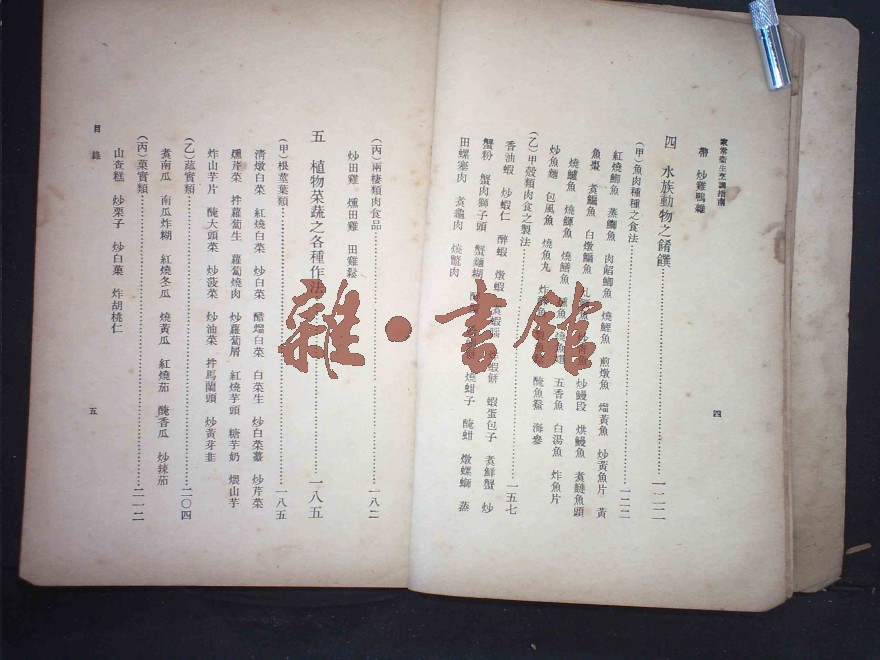 家常衛生烹調指南
四
帶 炒雞鴨雜
四 水族動物之餚饌…………一二二
(甲)魚肉種種之食法…………一二二
紅燒鰣魚 蒸鰣魚 肉餡鯽魚 燒鯉魚 煎燉魚 熘黃魚 炒黃魚片 黃
魚棗 煮鯿魚 白燉鯿魚 魚 炒鰻段 烘鰻魚 煮鰱魚頭
燒鱸魚 燒鯶魚 燒鱔魚 魚 五香魚 白湯魚 炸魚片
炒魚麵 包風魚 燒魚丸 炸 醃魚鯗 海參
(乙)甲殼類肉食之製法…………一五七
香油蝦 炒蝦仁 醉蝦 燉蝦 蝦餅 蝦蛋包子 煮鮮蟹 炒
蟹粉 蟹肉獅子頭 蟹麵糊 燒蚶子 醃蚶 燉螺螄 蒸
田螺塞肉 煮龜肉 燒鼈肉
(丙)兩棲類肉食品…………一八二
炒田雞 燻田雞 田雞鬆
五 植物菜蔬之各種作法…………一八五
(甲)根莖葉類…………一八五
清燉白菜 紅燒白菜 炒白菜 醋熘白菜 白菜生 炒白菜薹 炒芹菜
燻芹菜 拌蘿蔔生 蘿蔔燒肉 炒蘿蔔屑 紅燒芋頭 糖芋奶 煨山芋
炸山芋片 醃大頭菜 炒菠菜 炒油菜 拌馬蘭頭 炒黃芽韭
(乙)蔬實類…………二〇四
煮南瓜 南瓜炸糊 紅燒冬瓜 燒黃瓜 紅燒茄 醃香瓜 炒辣茄
(丙)菓實類…………二一二
山查糕 炒栗子 炒白菓 炸胡桃仁
目錄
五
雜·書館